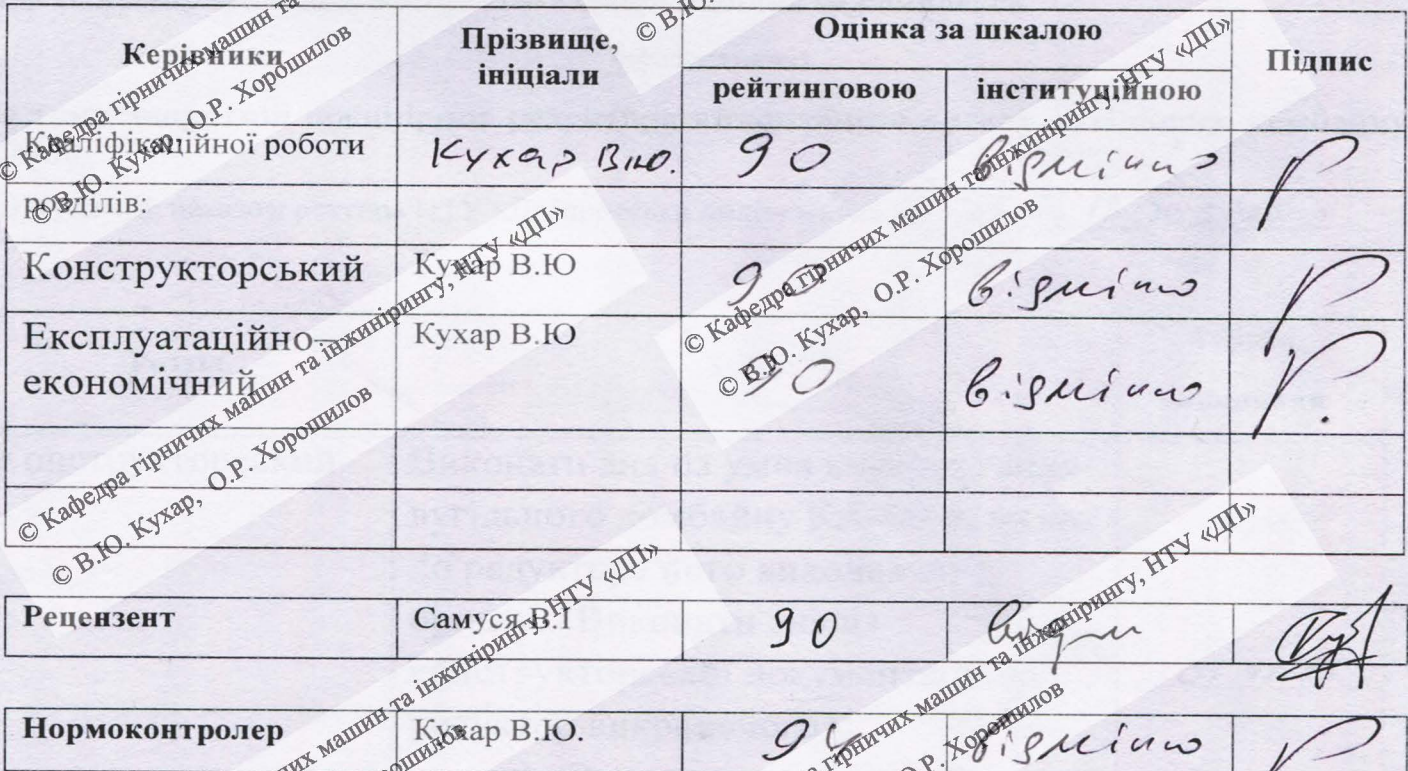 Керівники Прізвище, ініціали Оцінка за шкалою Підпис
рейтинговою інституційною
Кваліфікаційної роботи Кухар В.Ю. 90 відмінно
розділів:
Конструкторський Кухар В.Ю 90 відмінно
Експлуатаційно- Кухар В.Ю 90 відмінно
економічний
Рецензент Самуся В.І 90 відм
Нормоконтролер Кухар В.Ю. відмінно
© Кафедра гірничих машин та інжинірингу, НТУ «ДП»
© В.Ю. Кухар, О.Р. Хорошилов